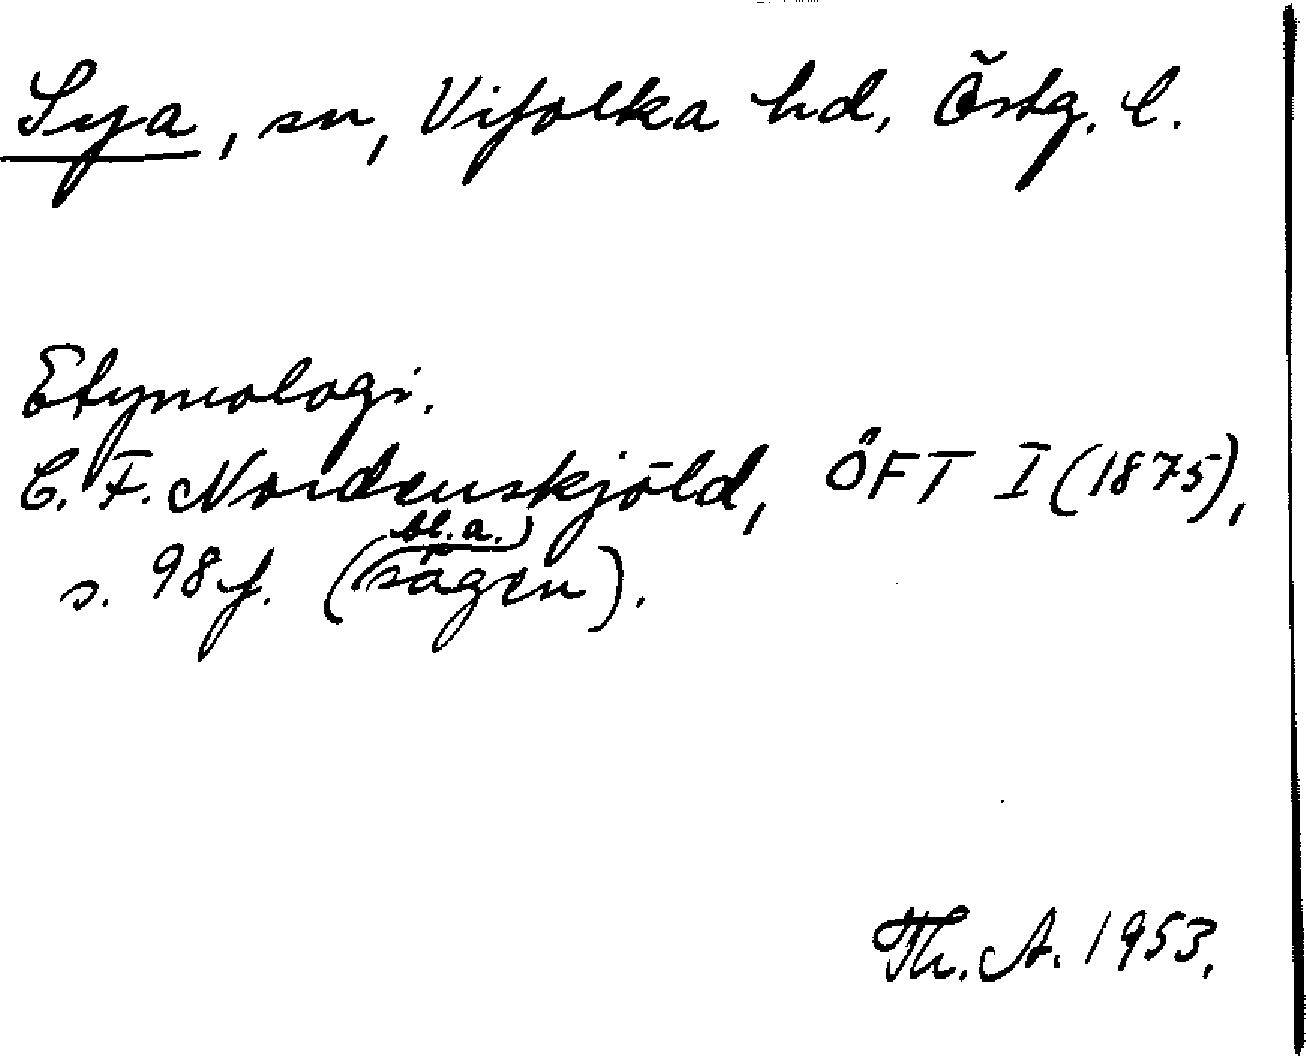 Sya, sn, Vifolka hd, Östg. l.
Etymologi.
C. F. Nordenskjöld, ÖFT I (1875),
bl.a.
s. 98 f. (sägen).
Th. A. 1953.